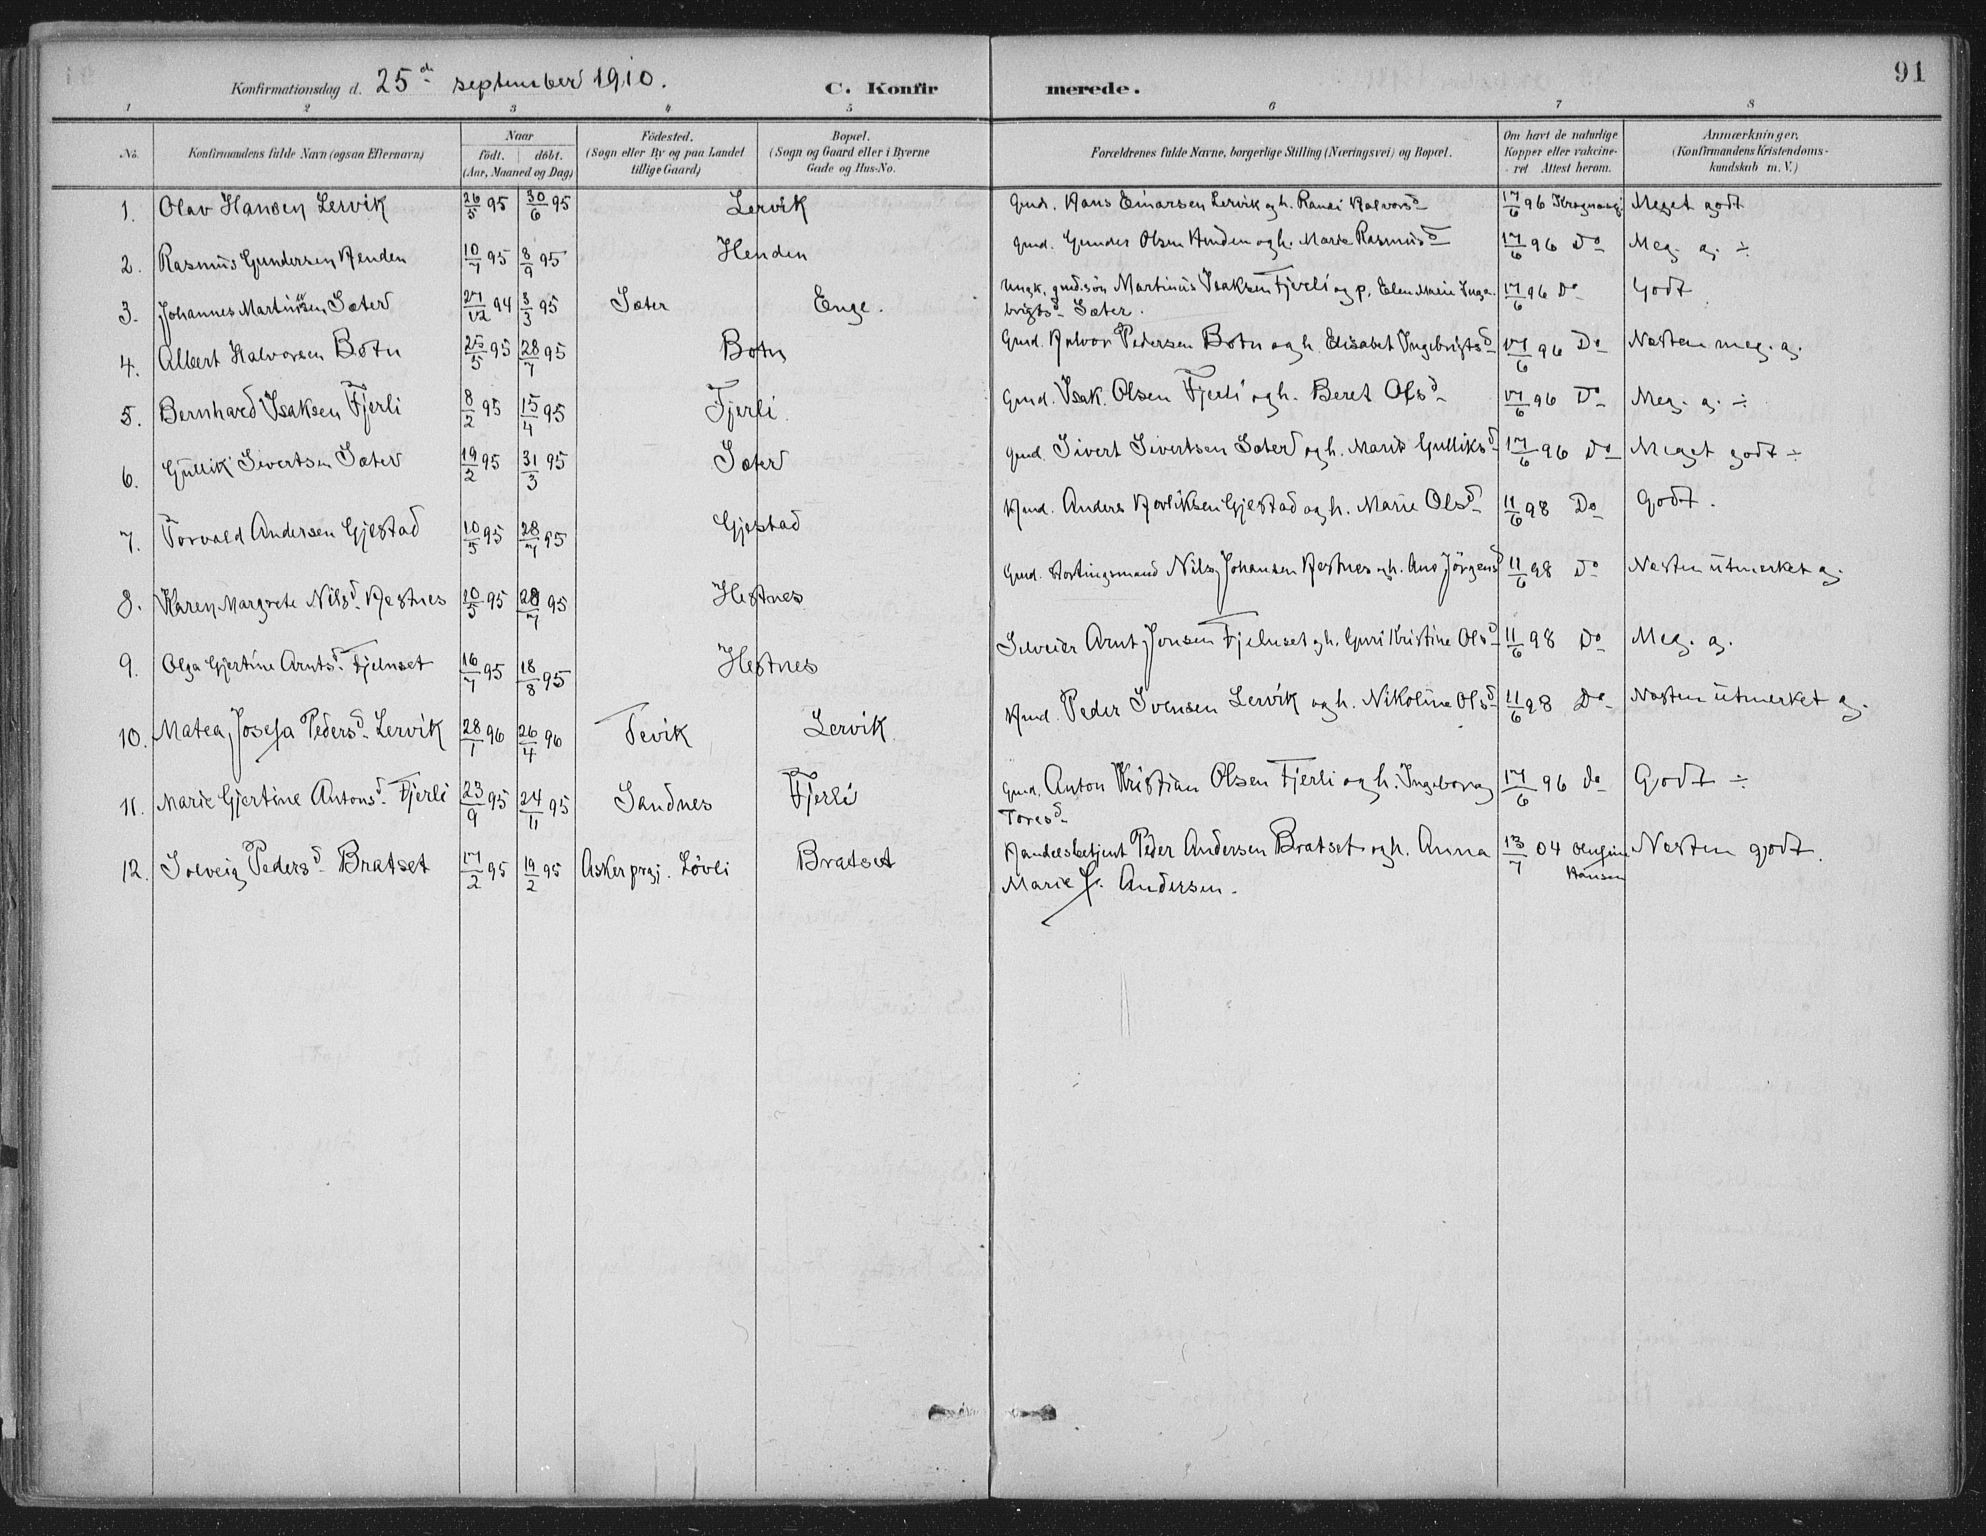 91
Konfirmationsdag d. 25de september 1910. C. Konfirmerede.
1 2 3 4 5 6 7 8
No. Konfirmandens fulde Navn (ogsaa Efternavn) Naar födt. döbt. (Aar, Maaned og Dag) Födested. (Sogn eller By og paa Landet tillige Gaard) Bopæl. (Sogn og Gaard eller i Byerne Gade og Hus-No. Forældrenes fulde Navne, borgerlige Stilling (Næringsvei) og Bopæl. Om havt de naturlige Kopper eller vakcineret Attest herom. Anmærkninger. (Konfirmandens Kristendomskundskab m. V.)
1. Olav Hansen Lervik 26/5 95 30/6 95 Lervik Gmd. Hans Einarsen Lervik og h. Randi Halvorsd 17/6 96 Meget godt
2. Rasmus Gundersen Henden 10/7 95 8/9 95 Henden Gmd. Gunder Olsen Henden og h. Marie Rasmusd 17/6 96 Do Meg. g. ÷
3. Johannes Martinusen Sæter 27/12 94 3/3 95 Sæter Enge. Ungk. gmd.søn Martinus Isaksen Fjerli og p. Elen Marie Inge-
brigtsd Sæter. 17/6 96 Do Godt
4. Albert Halvorsen Botn 25/5 95 28/7 95 Botn Gmd. Halvor Pedersen Botn og h. Elisabet Ingebrigtsd 17/6 96 Do Næsten meg. g.
5. Bernhard Isaksen Fjerli 8/2 95 15/4 95 Fjerli Gmd. Isak Olsen Fjerli og h. Beret Olsd 17/6 96 Do Meg. g. ÷
6. Gullik Sivertsen Sæter 19/2 95 31/3 95 Sæter Gmd. Sivert Sivertsen Sæter og h. Marit Gulliksd 17/6 96 Do Meget godt ÷
7. Torvald Andersen Gjestad 10/5 95 28/7 95 Gjestad Hmd. Anders Gjestad og h. Marie Olsd 11/6 98 Do Godt.
8. Karen Margrete Nilsd. Hestnes 20/5 95 28/7 95 Hestnes Gmd. Stortingsmand Nils Johansen Hestnes og h. Ane Jörgensd 11/6 98 Do Næsten utmerket g.
9. Olga Gjertine Arntsd. Fjelnset 16/7 95 18/8 95 Hestnes Arnt Jonsen Fjelnset og h. Guri Kristine Olsd 11/6 98 Do Meg. g.
10. Matea Josefa Pedersd. Lervik 28/1 96 26/4 96 Tevik Lervik Hmd. Peder Svensen Lervik og h. Nikoline Olsd 11/6 98 Do Næsten utmerket g.
11. Marie Gjertine Antonsd. Fjerli 23/9 95 24/11 95 Sandnes Fjerli Gmd. Anton Kristian Olsen Fjerli og h. Ingeborg
Toresd 17/6 96 do Godt ÷
12. Solveig Pedersd. Bratset 17/2 95 19/2 95 Asker prgj. Løvli Bratset Handelsbetjent Peder Andersen Bratset og h. Anna
Marie J. Andersen. 13/7 04 Hansen Næsten godt.